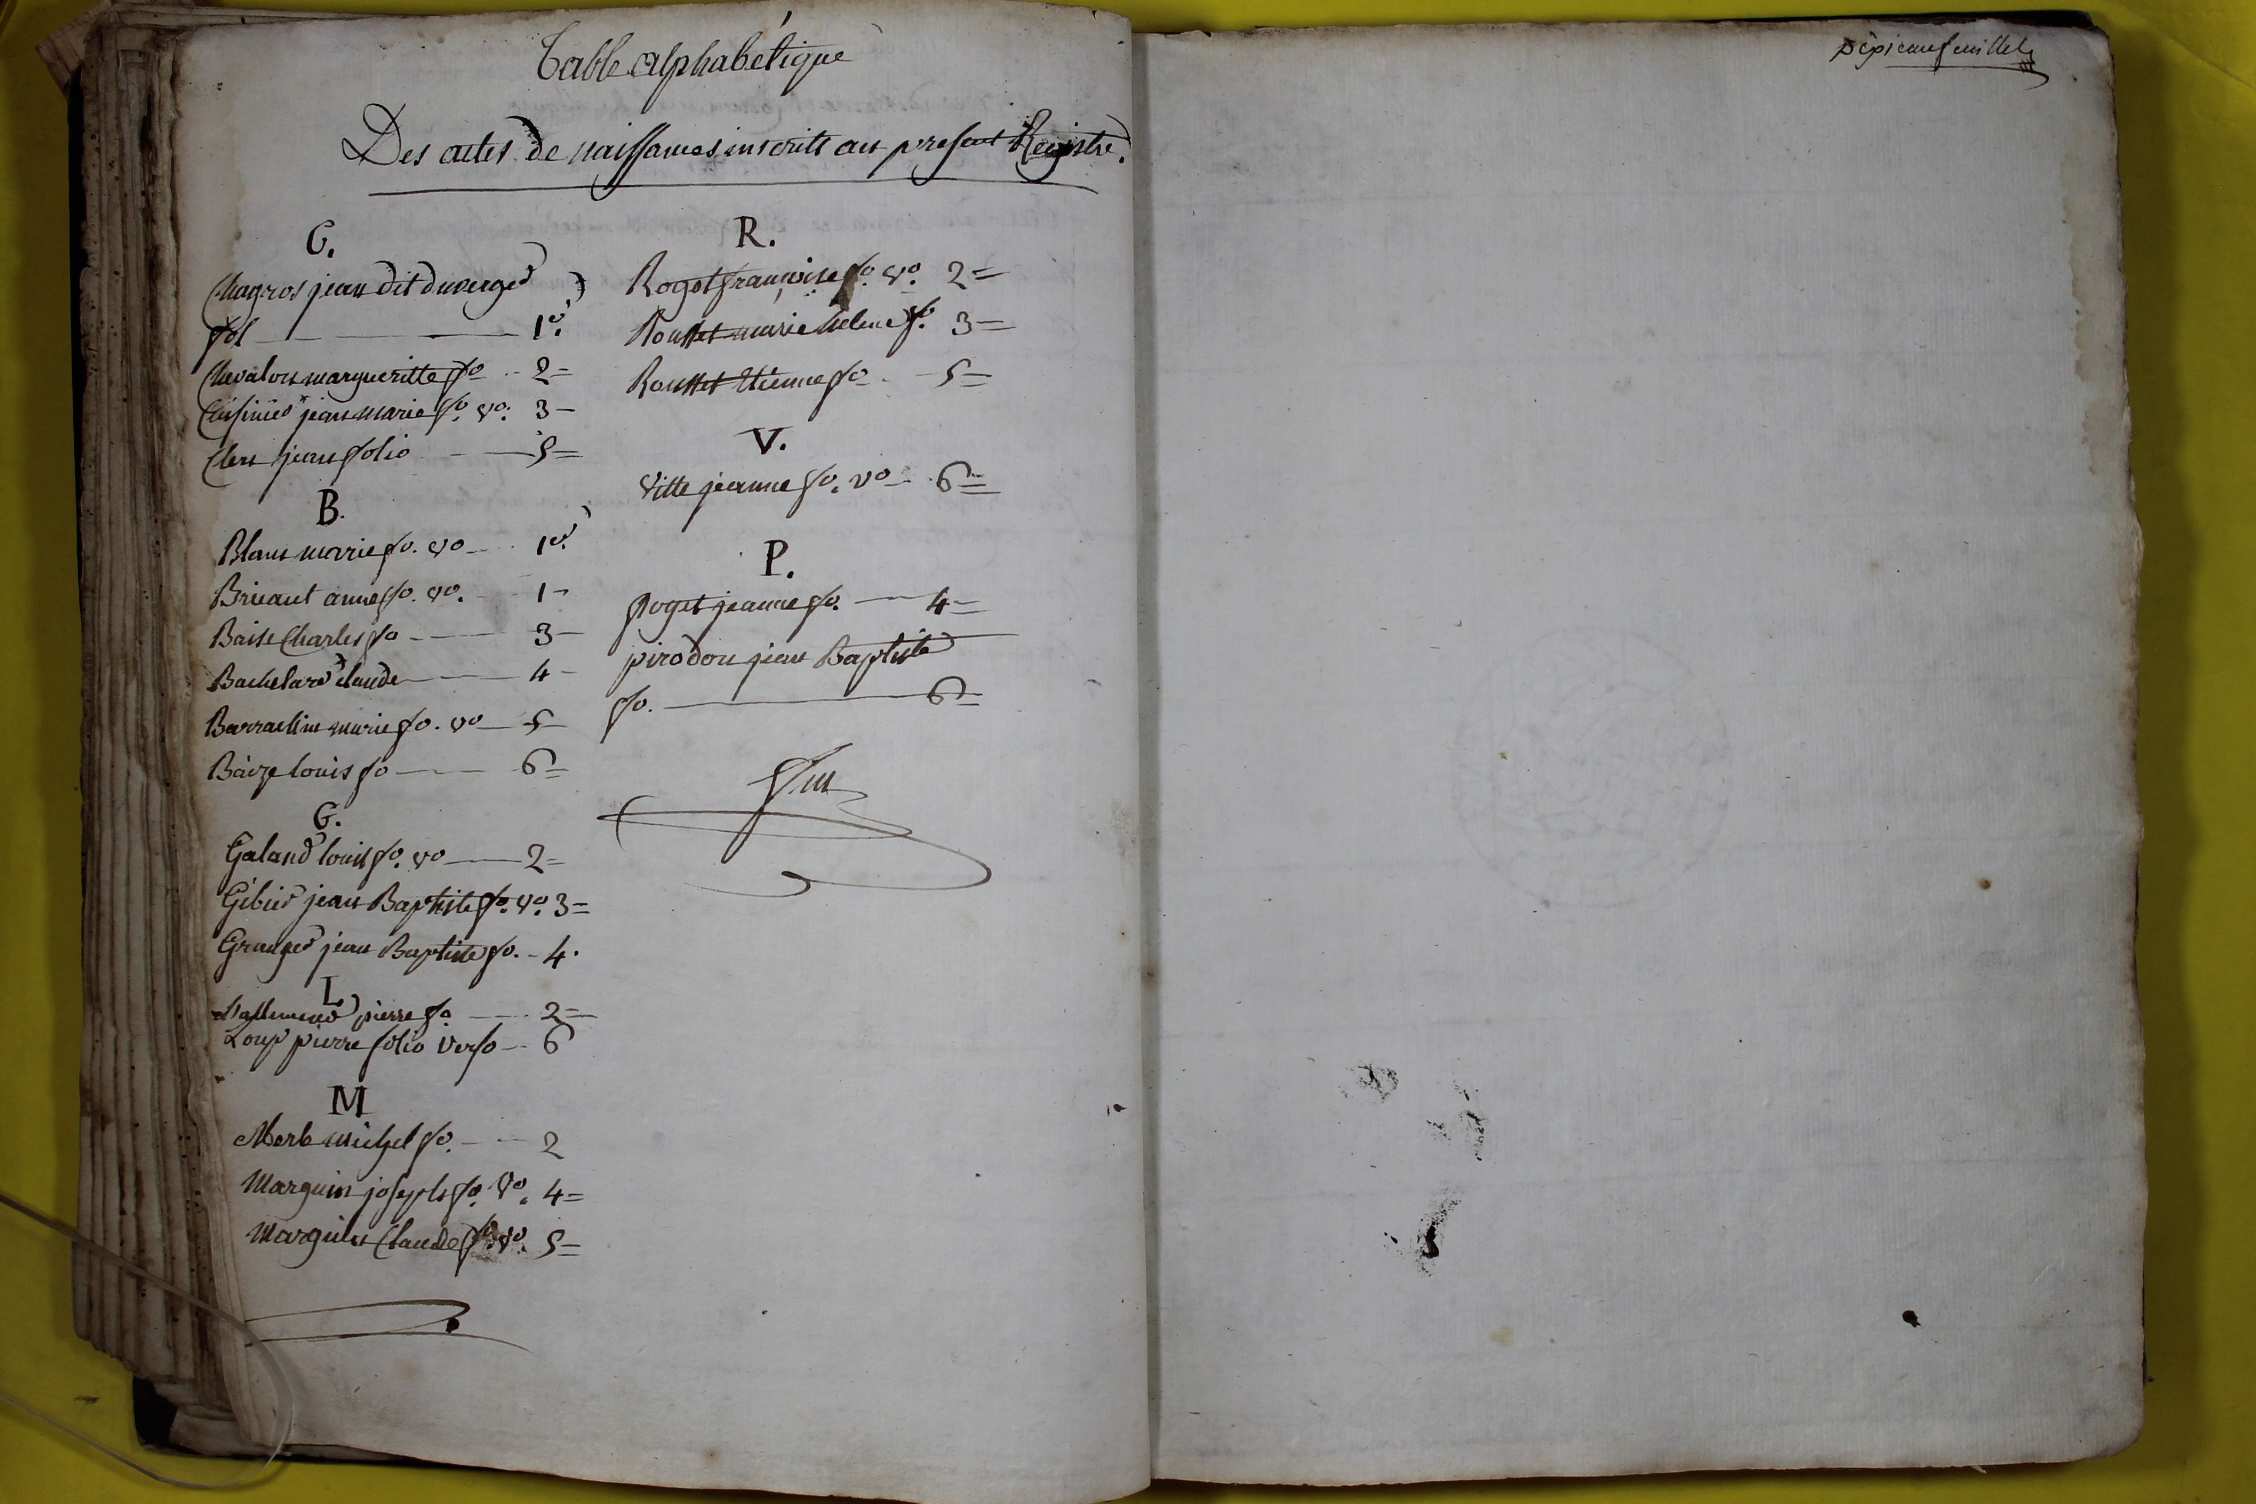 Table alphabétique
Des actes de naissances inscrits au present Registre.
C.
Chagros jean dit duverger
fol 1er
Chevalon margueritte fo 2
Cuisinier jean marie fo. vo. 3
Clers jean folio 5
B.
Blanc marie fo. vo 1er
Brieant anne fo. vo. 1
Baise Charles fo 3
Bachelard claude 4
Barrachin marie fo. vo 5
Baize louis fo 6
G.
Galand louis fo. vo 2
Gibier jean Baptiste fo. vo. 3
Granger jean Baptiste fo. 4.
L.
pierre fo 2
Loup pierre folio verso 6
M
Merle michel fo. 2
Marguin joseph fo. vo. 4
Marguin Claude fo. vo. 5
R.
Rogot françoise fo. vo. 2
Rousset marie helene fo. 3
Rousset Etienne fo 5
V.
Ville jeanne fo. vo 6
P.
Poget jeanne fo. 4
pirodon jean Baptiste
fo. 6